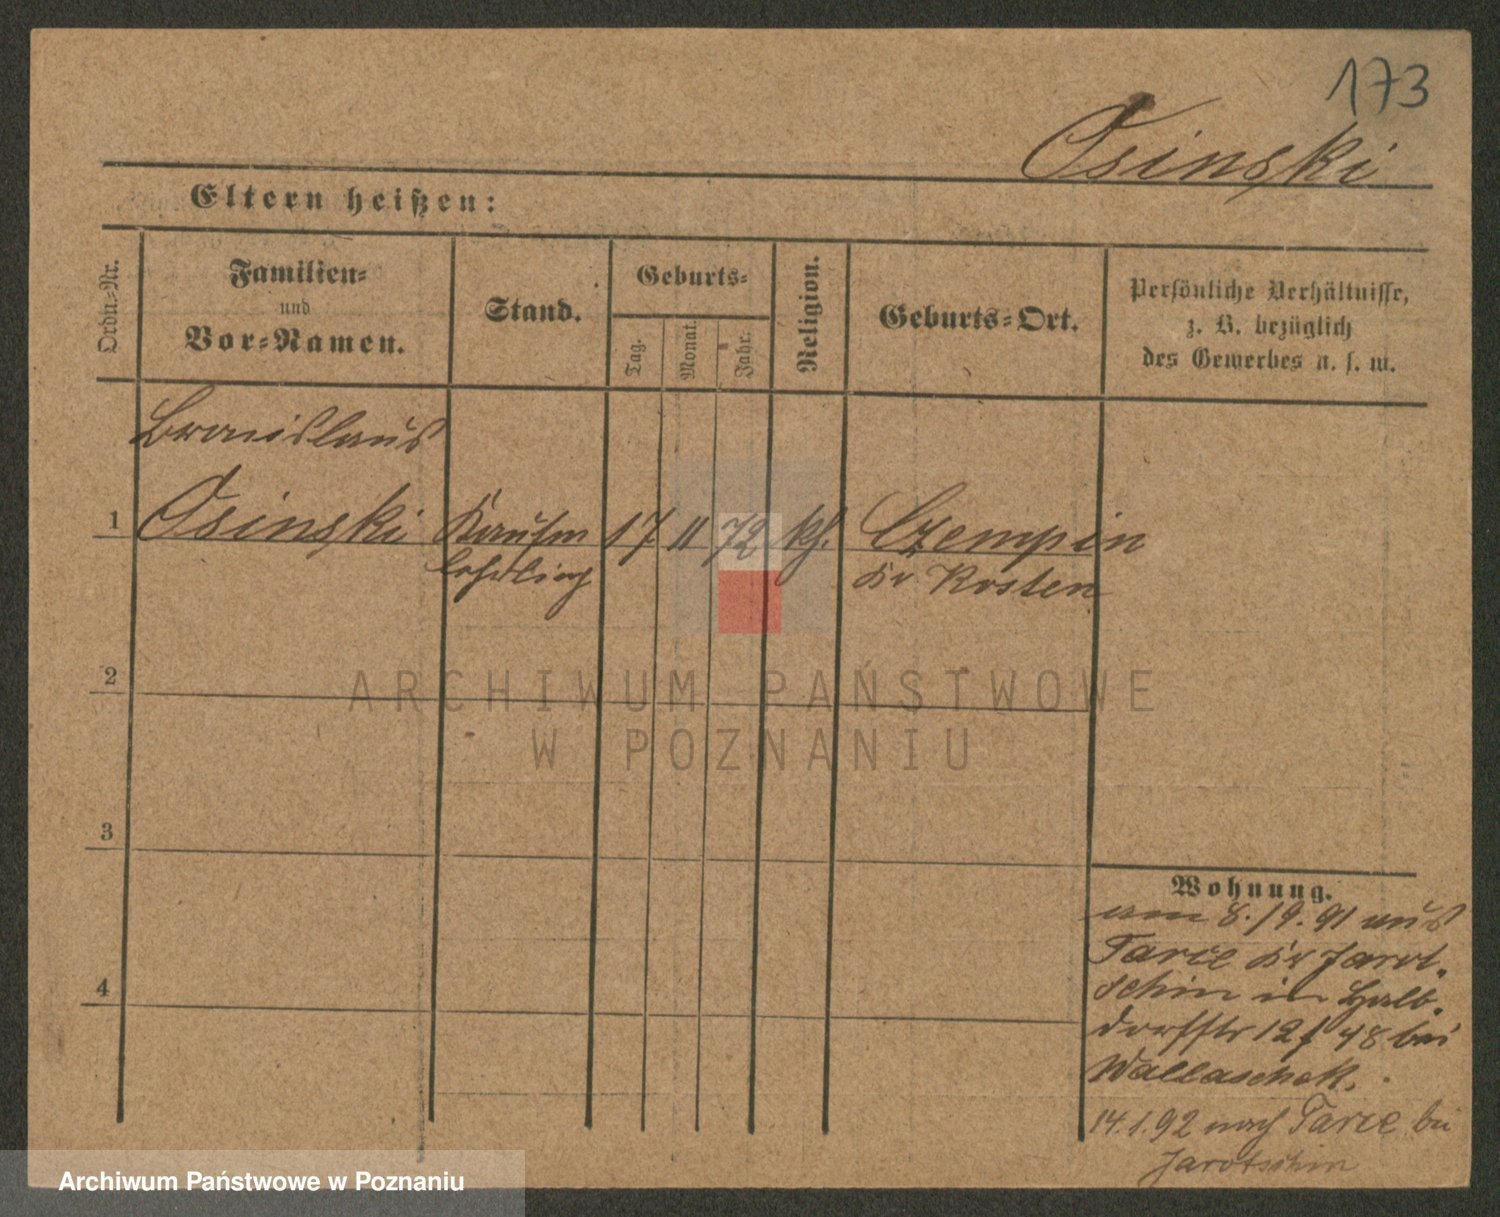 173
Osinski
Eltern heißen:
Ordn.-Nr.
Familien-
und
Vor-Namen.
Stand.
Geburts-
Tag.
Monat.
Jahr.
Religion.
Geburts-Ort.
Persönliche Verhältnisse,
z. B. bezüglich
des Gewerbes u. s. w.
Bronislaus
1 Osinski Kaufm 17 11 72 kh. Czempin
lehrling Kr Kosten
2
ARCHIWUM PAŃSTWOWE
W POZNANIU
3
4
Wohnung.
am 8./9. 91 aus
Tarce Kr Jarot.
schin in Halb.
dorfstr 12 f 48 bei
Wallaschek.
14.1.92 nach Tarce bei
Jarotschin
Archiwum Państwowe w Poznaniu